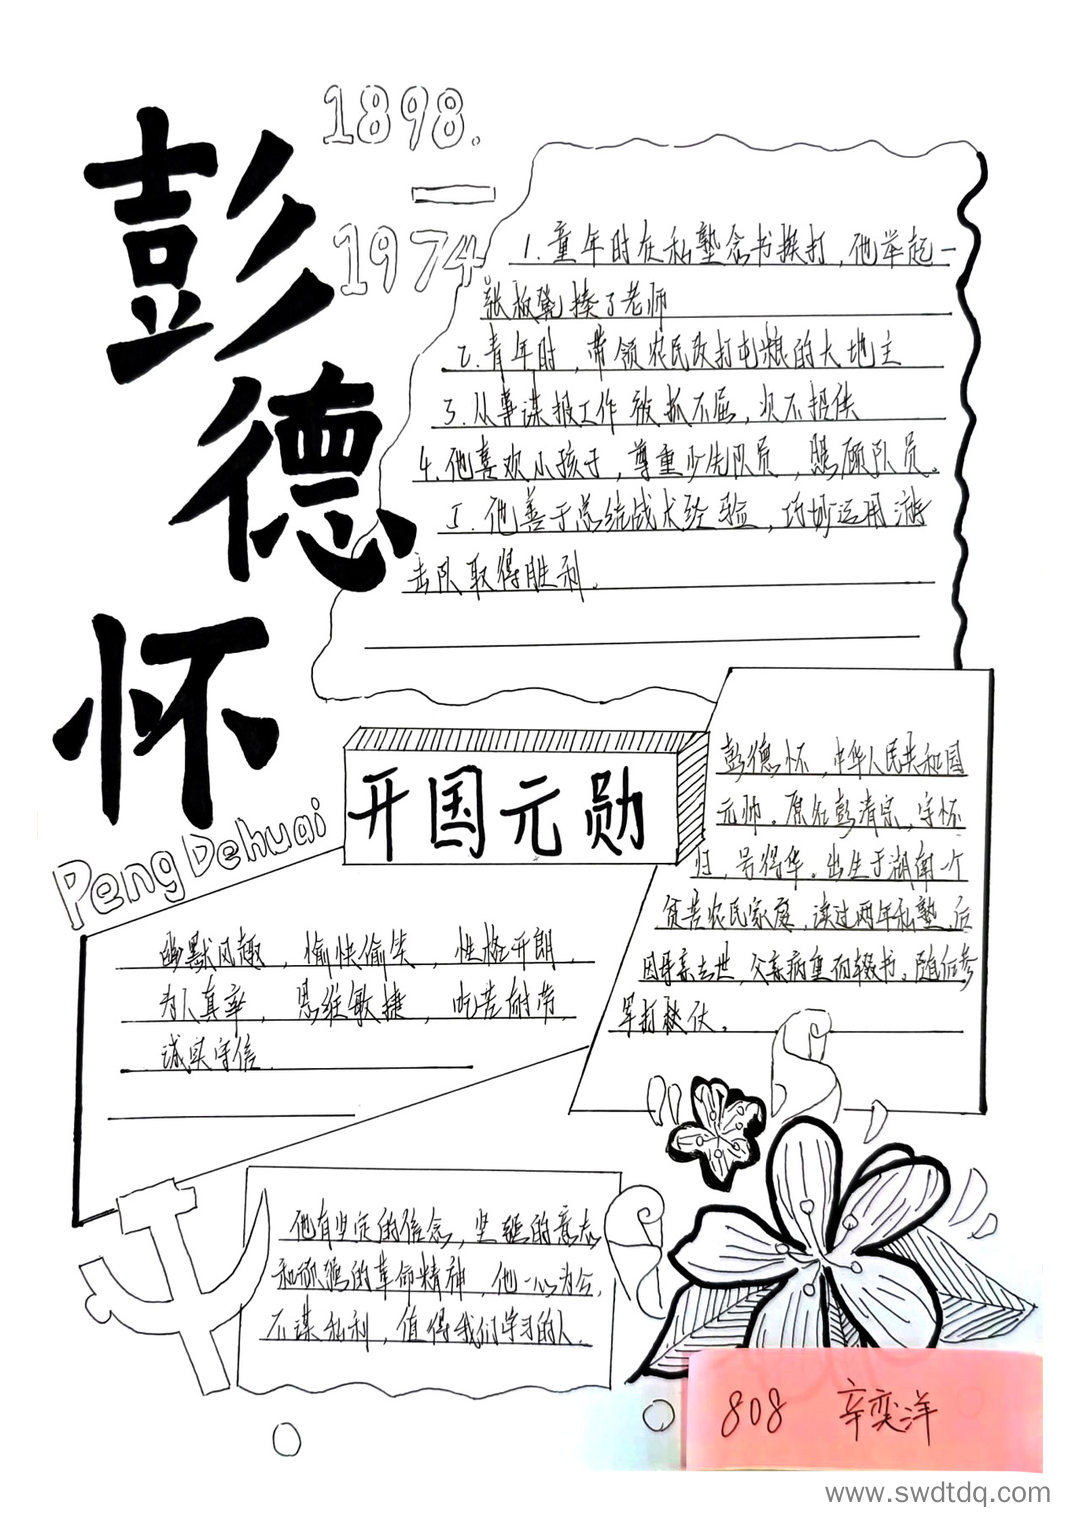 彭德怀
1898.
—
1974
1.童年时在私塾念书挨打，他举起一
张板凳揍了老师
2.青年时，带领农民攻打屯粮的大地主
3.从事谍报工作被抓不屈，坝不招供
4.他喜欢小孩子，尊重少先队员，照顾队员。
5.他善于总结战术经验，巧妙运用游
击队取得胜利。
开国元勋
Peng Dehuai
彭德怀，中华人民共和国
元帅。原名彭清宗，字怀
归，号得华。出生于湖南一个
贫苦农民家庭，读过两年私塾，后
因母亲去世，父亲病重而辍书。随后参
军打秋伙。
幽默风趣，愉快偷笑，性格开朗，
为人真率，思维敏捷，吃苦耐劳，
诚实守信.
他有坚定的信念，坚强的意志
和顽强的革命精神，他一心为公，
不谋私利，值得我们学习的人.
808 辛奕洋
www.swdtdq.com